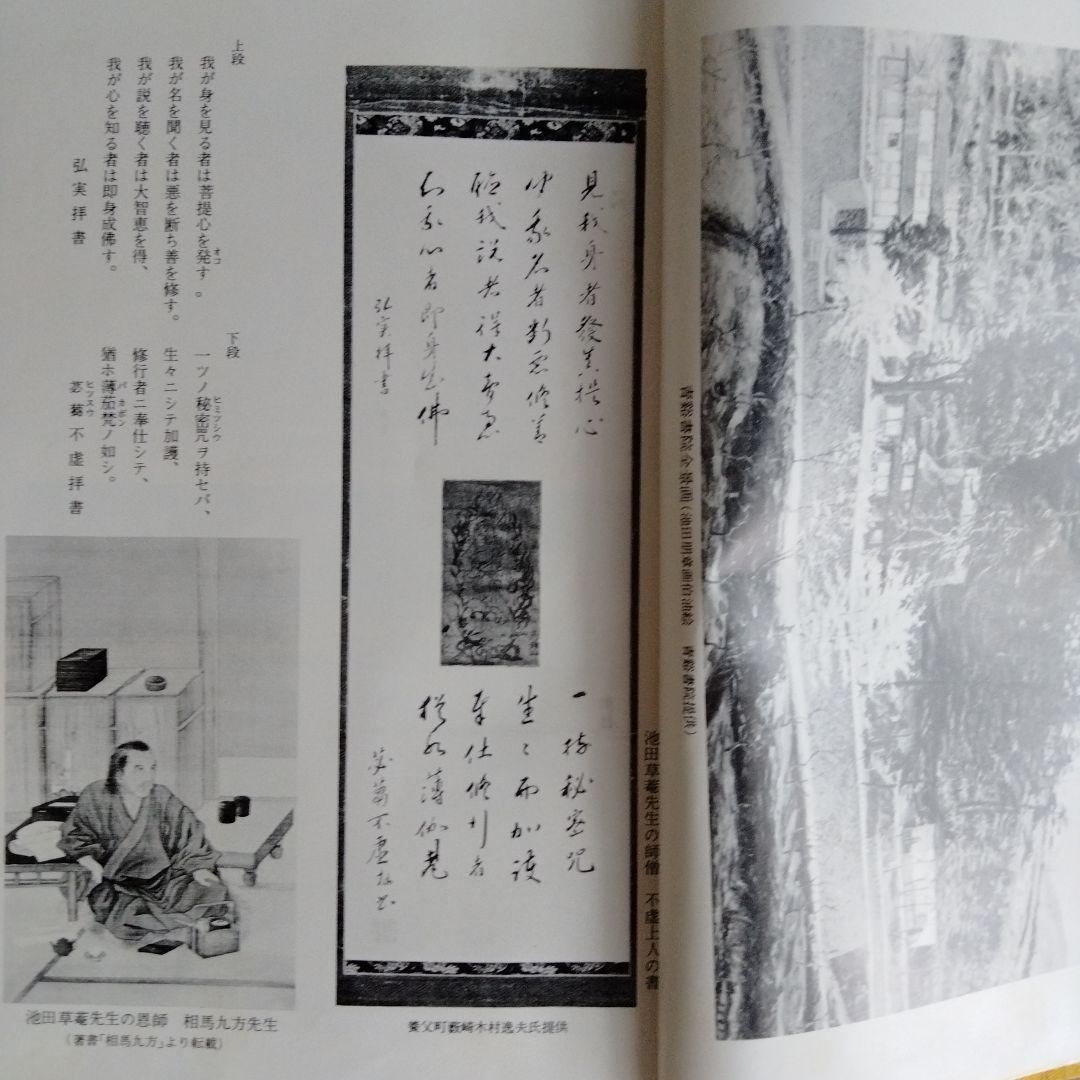 青谿書院全景画(池田明章画伯油絵 青谿書院提供)
池田草菴先生の師僧 不虚上人の書
見我身者發菩提心
聞我名者断惡修善
聴我説者得大智恵
知我心者即身成佛
弘実拝書
一持秘密咒
生々而加護
奉仕修行者
猶如薄伽梵
苾蒭不虚拝書
養父町薮崎木村逸夫氏提供
上段
我が身を見る者は菩提心を発す。
オコ
我が名を聞く者は悪を断ち善を修す。
我が説を聴く者は大智恵を得、
我が心を知る者は即身成佛す。
弘実拝書
下段
一ツノ秘密咒ヲ持セバ、
ヒミツシウ
生々ニシテ加護、
修行者ニ奉仕シテ、
猶ホ薄茄梵ノ如シ。
バカボン
苾蒭不虚拝書
ヒツスウ
池田草菴先生の恩師 相馬九方先生
(著書「相馬九方」より転載)